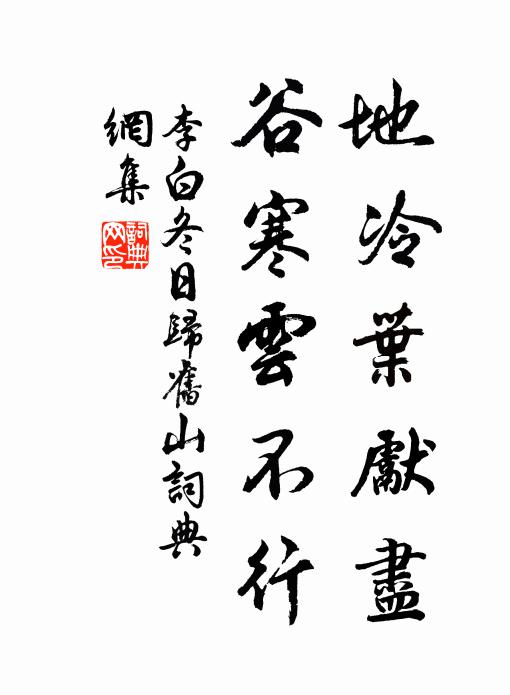 地冷葉獻盡
谷寒雲不行
李白冬日歸舊山詞典
網集
詞典
网印